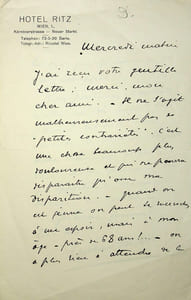 HOTEL RITZ
WIEN, I.,
Kärntnerstrasse - Neuer Markt.
Telephon: 73-5-20 Serie.
Telegr.-Adr.: Ritzotel Wien.
Mercredi matin
J'ai reçu votre gentille
lettre; merci, mon
cher ami. - Il ne s'agit
malheureusement pas de
"petites contrariétés". C'est
une chose beaucoup plus
douloureuse et qui ne pourra
disparaître qu'avec ma
disparition. - quand on
est jeune on peut se
à un espoir, mais à mon
âge - près de 68 ans! - on
a plus rien à attendre de la